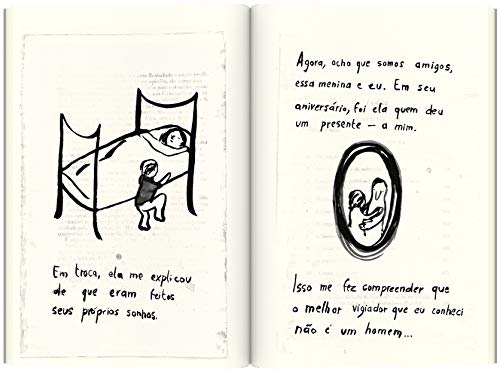 Em troca, ela me explicou
de que eram feitos
seus próprios sonhos.
Agora, acho que somos amigos,
essa menina e eu. Em seu
aniversário, foi ela quem deu
um presente – a mim.
Isso me fez compreender que
o melhor vigiador que eu conheci
não é um homem...